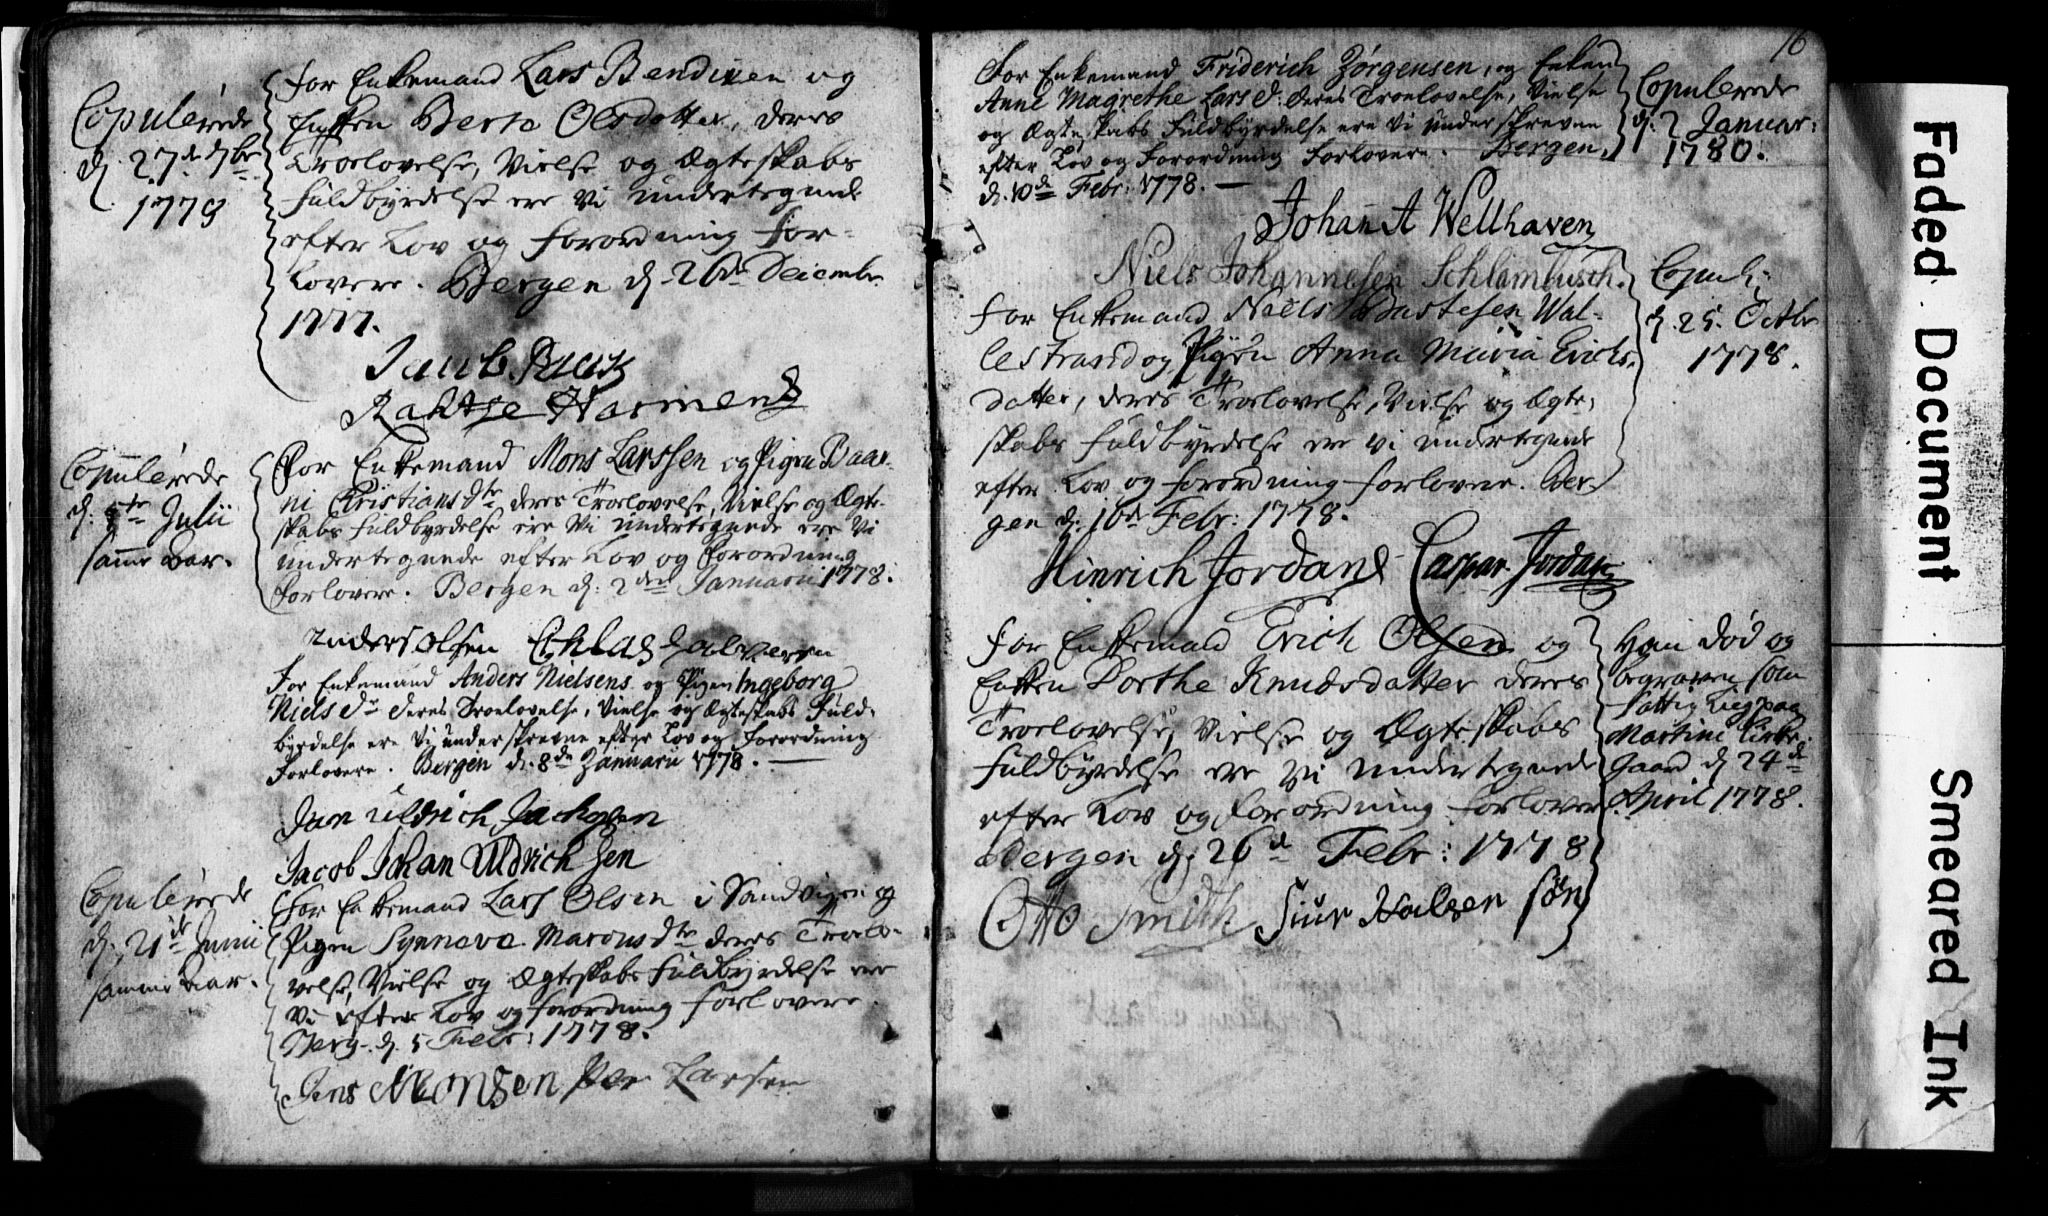 Copulerede
d. 27de 7br
1778
For Enkemand Lars Bendixen og
Enken Berte Olsdatter, deres
Troelovelse, Vielse og Ægteskabs
fuldbyrdelse ere Vi undertegnede
efter Lov og Forordning For-
lovere. Bergen d. 26de Decembr
1777.
Copulerede
d. Julii
samme Aar.
For Enkemand Mons Larssen og Pigen Baar-
ni Christiansdtr deres Troelovelse, Vielse og Ægte-
skabs fuldbyrdelse ere Vi undertegnede ere Vi
undertegnede efter Lov og Forordning
Forlovere. Bergen d: 2den Januarii 1778.
Anders Olsen
For Enkemand Anders Nielsens og Pigen Ingeborg
Niels Dr deres Troelovelse, Vielse og Ægteskabs Fuld-
byrdelse ere Vi underskrevne efter Lov og Forordning
Forlovere. Bergen d. 8de Januarii 1778.
Jan Uldrich Jachobsen
Jacob Johan Uldrichsen
Copulerede
d. 21de Junii
samme Aar.
For Enkemand Lars Olsen i Sandvigen og
Pigen Synneva Marcusdtr deres Troelo-
velse, Vielse og Ægteskabs Fuldbyrdelse ere
Vi efter Lov og forordning forlovere.
Berg. d. 5 Febr: 1778.
Jens Monsen Per Larsen
16
For Enkemand Friderich Jørgensen, og Enken
Anne Magrethe Lars D: deres Troelovelse, Vielse
og Ægteskabs Fuldbyrdelse ere Vi underskrevne
efter Lov og Forordning Forlovere. Bergen,
d. 10de Febr: 1778.
Copulerede
d: 2 Januar:
1780.
Johan A Wellhaven
Niels Johannesen Schlambusch.
For Enkemand Niels Wal-
lestrand og Pigen Anna Maria Erichs-
datter, deres Troelovelse, Vielse og Ægte-
skabs fuldbyrdelse ere vi undertegnede
efter Lov og forordning forlovere. Ber-
gen d. 16de Febr: 1778.
Copul:
d. 25. Octbr
1778.
Hinrich Jordan Caspar Jordan
For Enkemand Erich Olsen og
Enken Dorthe Knudsdatter deres
Troelovelse, Vielse og Ægteskabs
fuldbyrdelse ere Vi undertegnede
efter Lov og Forordning forlovere
Bergen d. 26de Febr: 1778
Han død og
begraven som
fattig Liig paa
Martini Kirke-
gaard d 24de
April 1778.
Otto Smith Siur søn
Faded Document
Smeared Ink